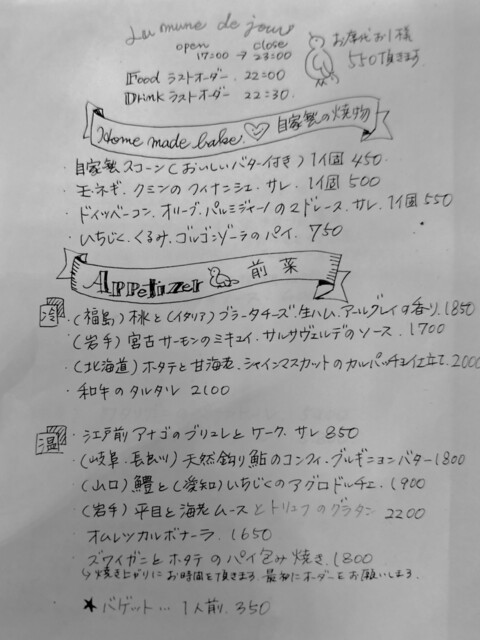 La mune de jour
open close
17:00 → 23:00
お席代お1人様
550頂きます
Food ラストオーダー. 22:00
Drink ラストオーダー 22:30.
Home made bake. 自家製の焼物
・自家製スコーン(おいしいバター付き) 1個 450.
・モネギ、クミンのフィナンシェ. サレ. 1個 500
・ドイツベーコン、オリーブ、パルミジャーノのマドレーヌ. サレ. 1個 550
・いちじく、くるみ、ゴルゴンゾーラのパイ. 750
Appetizer 前菜
冷
・(福島)桃と(イタリア)ブラータチーズ、生ハム、アールグレイの香り. 1850
・(岩手)宮古サーモンのミキュイ、サルサヴェルデのソース. 1700
・(北海道)ホタテと甘海老、シャインマスカットのカルパッチョ仕立て. 2000
・和牛のタルタル 2100
温
・江戸前アナゴのブリュレとケーク. サレ 850
・(岐阜. 長良川)天然釣り鮎のコンフィ. ブルギニョンバター 1800
・(山口)鱧と(愛知)いちじくのアグロドルチェ. 1900
・(岩手)平目と海老ムースとトリュフのグラタン 2200
・オムレツカルボナーラ. 1650
・ズワイガニとホタテのパイ包み焼き. 1800
↳焼き上がりにお時間を頂きます. 最初にオーダーをお願いします.
★バゲット… 1人前. 350